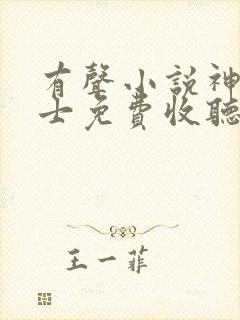 有聲小説神
士免費收聽
王一菲